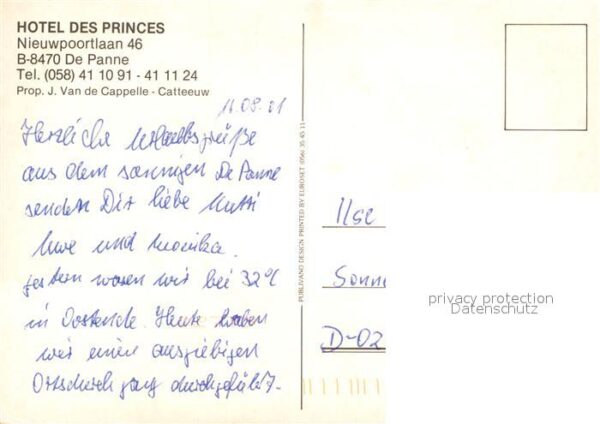 HOTEL DES PRINCES
Nieuwpoortlaan 46
B-8470 De Panne
Tel. (058) 41 10 91 - 41 11 24
Prop. J. Van de Cappelle - Catteeuw
11.09.01
Herzliche Urlaubsgrüße
aus dem sonnigen De Panne
senden Dir liebe Mutti
Uwe und Monika.
gestern waren wir bei 32°C
in Oostende. Heute haben
wir einen ausgiebigen
Ortsdurchgang durchgeführt.
PUBLIVANO DESIGN PRINTED BY EUROSET (056) 35 45 11
Ilse
Sonne
D-02
privacy protection
Datenschutz